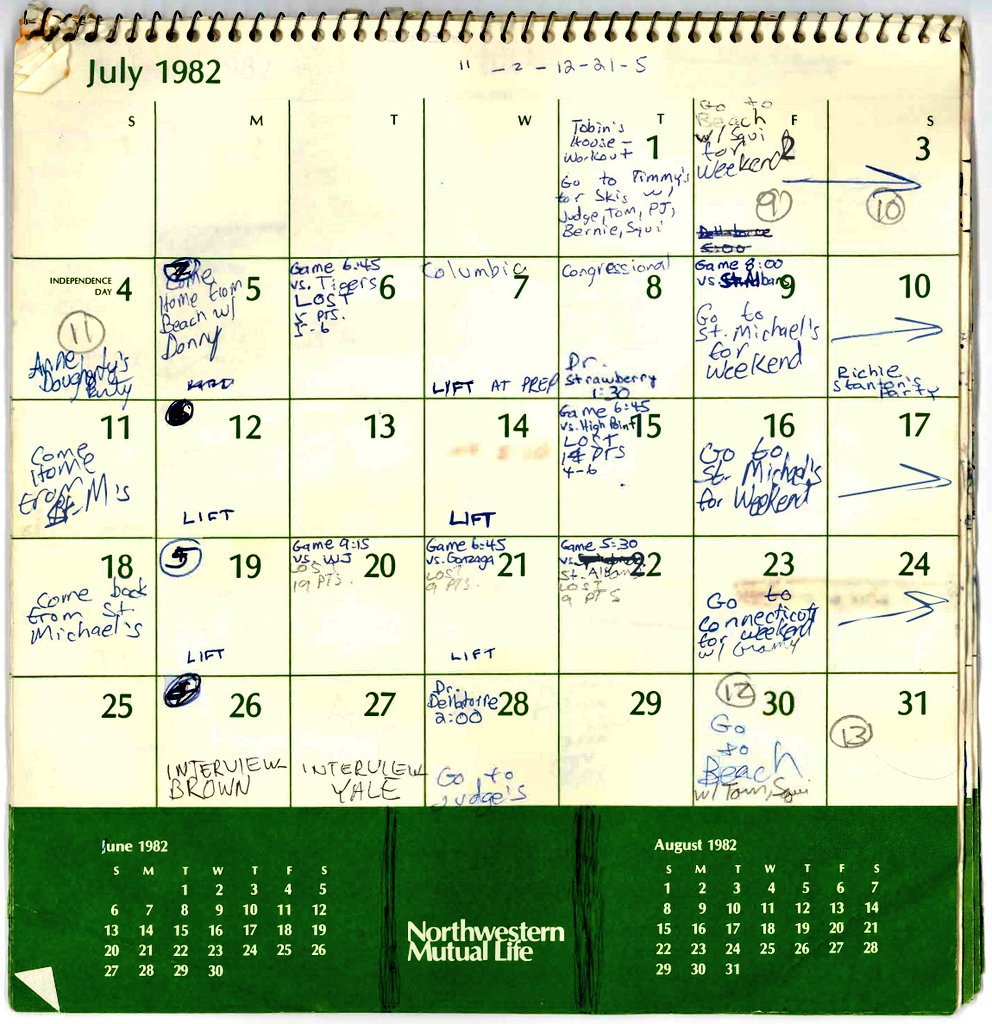 July 1982
" - 2 - 12-21-5
S M T W T F S
Tobin's
House -
Workout
1
Go to Timmy's
for Skis w/
Judge, Tom, PJ,
Bernie, Squi
Go to
Beach
w/ Squi
for
Weekend
2
9
5:00
3
10
INDEPENDENCE
DAY 4
11
Anne
Dougherty's
Party
5
Come
Home from
Beach w/
Donny
Game 6:45
vs. Tigers
LOST
5 PTS.
5-6
6
Columbia
7
LIFT AT PREP
Congressional
8
Dr.
Strawberry
1:30
Game 8:00
vs
9
Go to
St. Michael's
for
Weekend
10
Richie
Stanton's
Party
11
Come
Home
from
St. M's
12
LIFT
13
14
LIFT
Game 6:45
vs. High Point
LOST
PTS
4-6
15
16
Go to
St. Michael's
for Weekend
17
18
Come back
from St.
Michael's
5
19
LIFT
Game 9:15
vs. WJ
LOST
19 PTS.
20
Game 6:45
vs. Gonzaga
LOST
9 PTS.
21
LIFT
Game 5:30
vs.
St.
LOST
9 PTS
22
23
Go to
Connecticut
for weekend
w/ Granny
24
25
26
INTERVIEW
BROWN
27
INTERVIEW
YALE
Dr.
Dellatorre
2:00
28
Go to
Judge's
29
12
30
Go
to
Beach
w/ Tom, Squi
31
13
June 1982
S M T W T F S
1 2 3 4 5
6 7 8 9 10 11 12
13 14 15 16 17 18 19
20 21 22 23 24 25 26
27 28 29 30
Northwestern
Mutual Life
August 1982
S M T W T F S
1 2 3 4 5 6 7
8 9 10 11 12 13 14
15 16 17 18 19 20 21
22 23 24 25 26 27 28
29 30 31